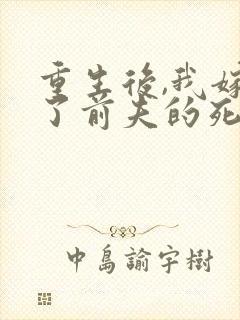 重生後,我嫁
了前夫的死
中島諭宇樹